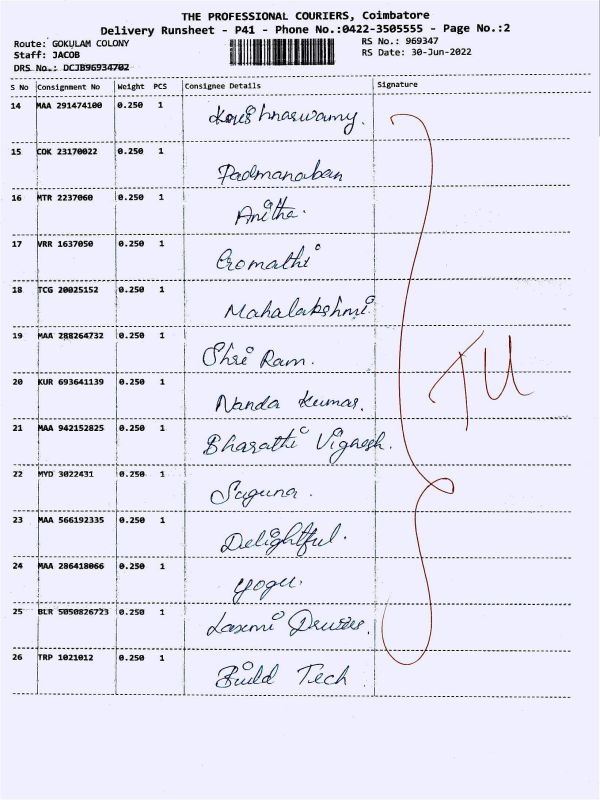 THE PROFESSIONAL COURIERS, Coimbatore
Delivery Runsheet - P41 - Phone No.:0422-3505555 - Page No.:2
Route: GOKULAM COLONY RS No.: 969347
Staff: JACOB RS Date: 30-Jun-2022
DRS No.: DCJB96934702
S No Consignment No Weight PCS Consignee Details Signature
14 MAA 291474100 0.250 1 Krishnaswamy.
15 COK 23170022 0.250 1 Padmanaban
16 MTR 2237060 0.250 1 Anitha.
17 VRR 1637050 0.250 1 Gomathi
18 TCG 20025152 0.250 1 Mahalakshmi
19 MAA 288264732 0.250 1 Shri Ram.
20 KUR 693641139 0.250 1 Nanda Kumar.
TU
21 MAA 942152825 0.250 1 Bharathi Vignesh.
22 MYD 3022431 0.250 1 Suguna.
23 MAA 566192335 0.250 1 Delightful.
24 MAA 286418066 0.250 1 Yogu.
25 BLR 5050826723 0.250 1 Laxmi
26 TRP 1021012 0.250 1 Build Tech